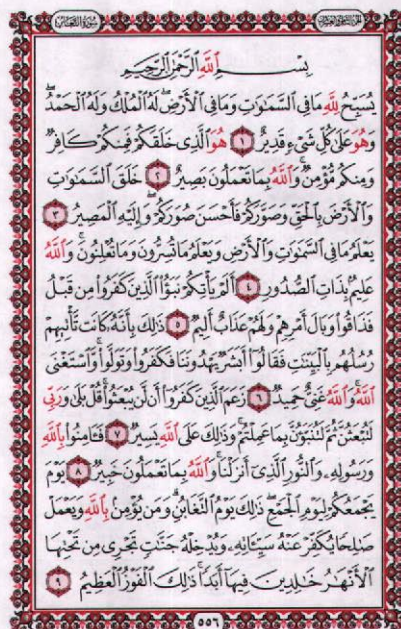 سورة التغابن
الجزء الثامن والعشرون
بِسْمِ اللَّهِ الرَّحْمَٰنِ الرَّحِيمِ
يُسَبِّحُ لِلَّهِ مَا فِي السَّمَٰوَٰتِ وَمَا فِي الْأَرْضِ ۖ لَهُ الْمُلْكُ وَلَهُ الْحَمْدُ ۖ
وَهُوَ عَلَىٰ كُلِّ شَيْءٍ قَدِيرٌ ١ هُوَ الَّذِي خَلَقَكُمْ فَمِنكُمْ كَافِرٌ
وَمِنكُم مُّؤْمِنٌ ۚ وَاللَّهُ بِمَا تَعْمَلُونَ بَصِيرٌ ٢ خَلَقَ السَّمَٰوَٰتِ
وَالْأَرْضَ بِالْحَقِّ وَصَوَّرَكُمْ فَأَحْسَنَ صُوَرَكُمْ ۖ وَإِلَيْهِ الْمَصِيرُ ٣
يَعْلَمُ مَا فِي السَّمَٰوَٰتِ وَالْأَرْضِ وَيَعْلَمُ مَا تُسِرُّونَ وَمَا تُعْلِنُونَ ۚ وَاللَّهُ
عَلِيمٌ بِذَاتِ الصُّدُورِ ٤ أَلَمْ يَأْتِكُمْ نَبَؤُا الَّذِينَ كَفَرُوا مِن قَبْلُ
فَذَاقُوا وَبَالَ أَمْرِهِمْ وَلَهُمْ عَذَابٌ أَلِيمٌ ٥ ذَٰلِكَ بِأَنَّهُ كَانَت تَّأْتِيهِمْ
رُسُلُهُم بِالْبَيِّنَٰتِ فَقَالُوا أَبَشَرٌ يَهْدُونَنَا فَكَفَرُوا وَتَوَلَّوا ۚ وَّاسْتَغْنَى
اللَّهُ ۚ وَاللَّهُ غَنِيٌّ حَمِيدٌ ٦ زَعَمَ الَّذِينَ كَفَرُوا أَن لَّن يُبْعَثُوا ۚ قُلْ بَلَىٰ وَرَبِّي
لَتُبْعَثُنَّ ثُمَّ لَتُنَبَّؤُنَّ بِمَا عَمِلْتُمْ ۚ وَذَٰلِكَ عَلَى اللَّهِ يَسِيرٌ ٧ فَـَٔامِنُوا بِاللَّهِ
وَرَسُولِهِ وَالنُّورِ الَّذِي أَنزَلْنَا ۚ وَاللَّهُ بِمَا تَعْمَلُونَ خَبِيرٌ ٨ يَوْمَ
يَجْمَعُكُمْ لِيَوْمِ الْجَمْعِ ۖ ذَٰلِكَ يَوْمُ التَّغَابُنِ ۗ وَمَن يُؤْمِن بِاللَّهِ وَيَعْمَلْ
صَٰلِحًا يُكَفِّرْ عَنْهُ سَيِّـَٔاتِهِ وَيُدْخِلْهُ جَنَّٰتٍ تَجْرِي مِن تَحْتِهَا
الْأَنْهَٰرُ خَٰلِدِينَ فِيهَا أَبَدًا ۚ ذَٰلِكَ الْفَوْزُ الْعَظِيمُ ٩
٥٥٦